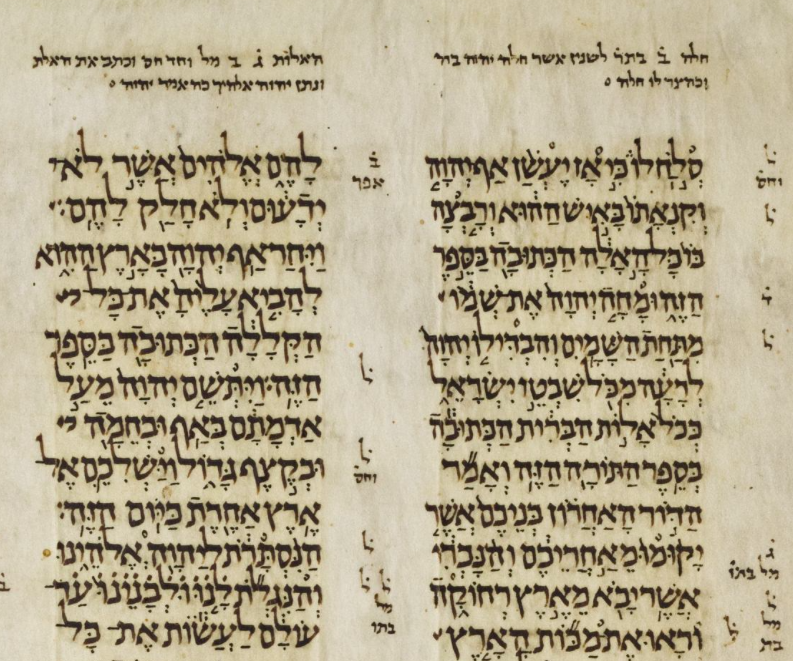 חלה ב בתר לשנין אשר חלה יהוה בה
סְלֹחַ לוֹ כִּי אָז יֶעְשַׁן אַף יְהוָה
וְקִנְאָתוֹ בָּאִישׁ הַהוּא וְרָבְצָה
בּוֹ כָּל הָאָלָה הַכְּתוּבָה בַּסֵּפֶר
הַזֶּה וּמָחָה יְהוָה אֶת שְׁמוֹ
מִתַּחַת הַשָּׁמָיִם וְהִבְדִּילוֹ יְהוָה
לְרָעָה מִכֹּל שִׁבְטֵי יִשְׂרָאֵל
כְּכֹל אָלוֹת הַבְּרִית הַכְּתוּבָה
בְּסֵפֶר הַתּוֹרָה הַזֶּה וְאָמַר
הַדּוֹר הָאַחֲרוֹן בְּנֵיכֶם אֲשֶׁר
יָקוּמוּ מֵאַחֲרֵיכֶם וְהַנָּכְרִי
אֲשֶׁר יָבֹא מֵאֶרֶץ רְחוֹקָה
וְרָאוּ אֶת מַכּוֹת הָאָרֶץ
האלות ג ב מל וחד חס וכתב את האלת
ונתן יהוה אלהיך כה אמר יהוה
לָהֶם אֱלֹהִים אֲשֶׁר לֹא
יְדָעוּם וְלֹא חָלַק לָהֶם׃
וַיִּחַר אַף יְהוָה בָּאָרֶץ הַהִוא
לְהָבִיא עָלֶיהָ אֶת כָּל
הַקְּלָלָה הַכְּתוּבָה בַּסֵּפֶר
הַזֶּה׃ וַיִּתְּשֵׁם יְהוָה מֵעַל
אַדְמָתָם בְּאַף וּבְחֵמָה
וּבְקֶצֶף גָּדוֹל וַיַּשְׁלִכֵם אֶל
אֶרֶץ אַחֶרֶת כַּיּוֹם הַזֶּה׃
הַנִּסְתָּרֹת לַיהוָה אֱלֹהֵינוּ
וְהַנִּגְלֹת לָנוּ וּלְבָנֵינוּ עַד
עוֹלָם לַעֲשׂוֹת אֶת כָּל